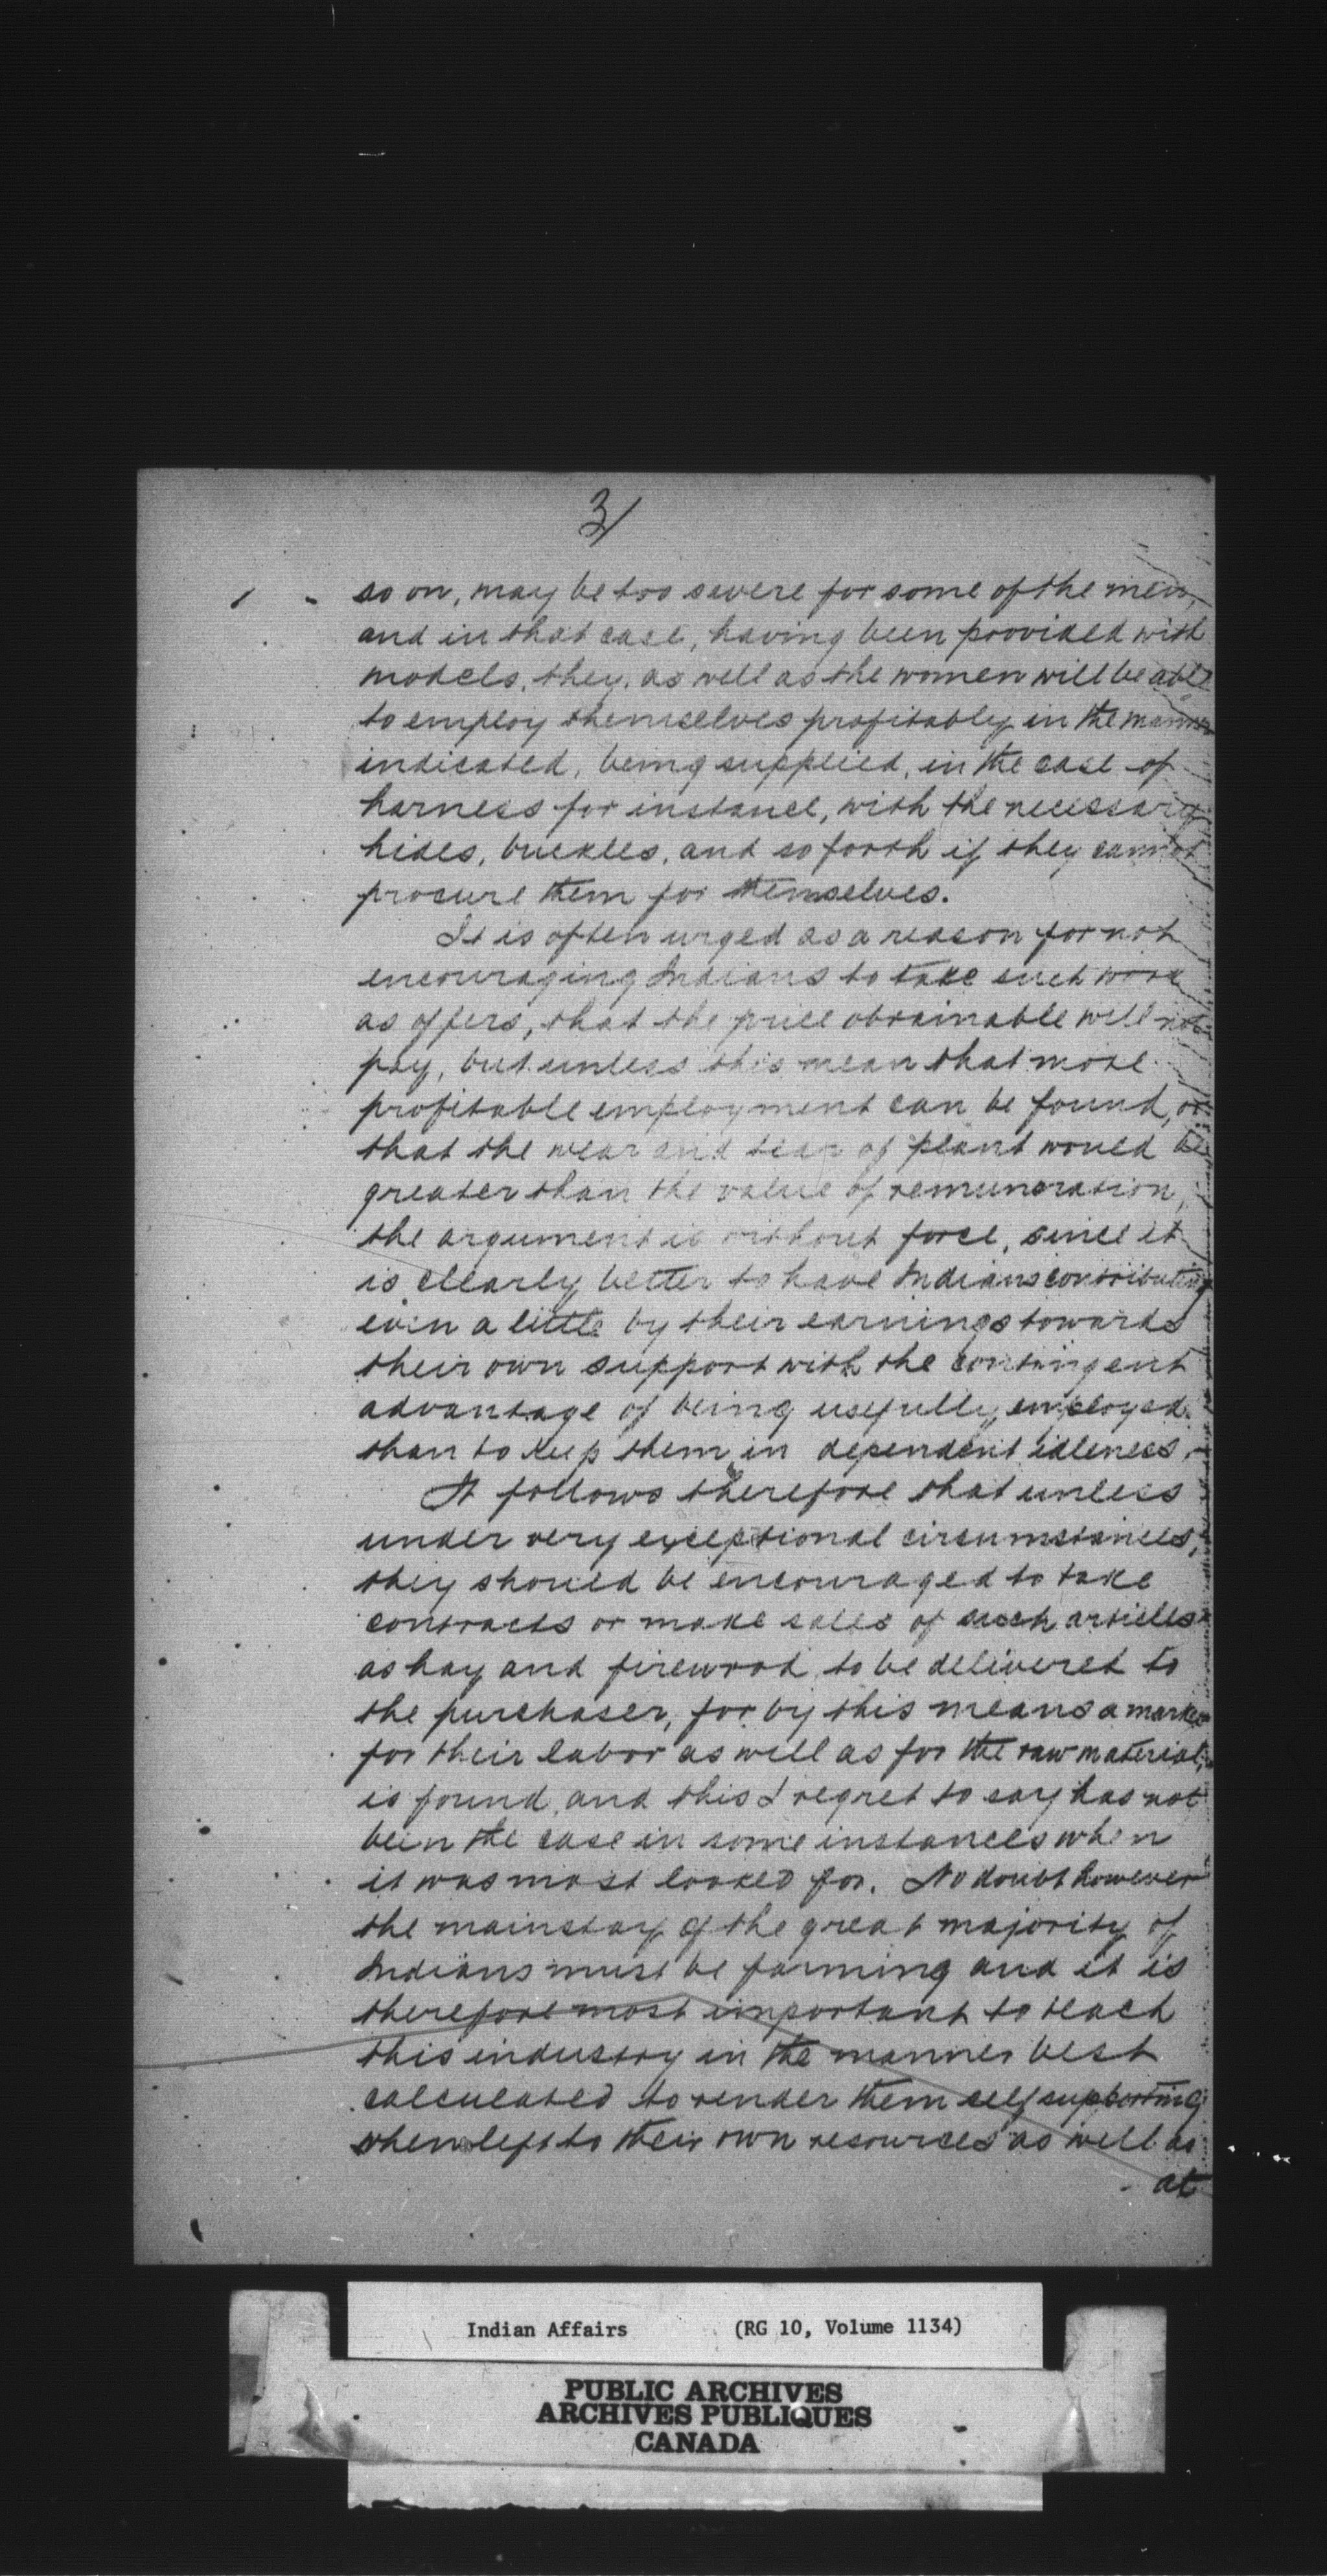 3/
so on, may be too severe for some of the men,
and in that case, having been provided with
models, they, as well as the women will be able
to employ themselves profitably in the manner
indicated, being supplied, in the case of
harness for instance, with the necessary
hides, buckles, and so forth if they cannot
procure them for themselves.
It is often urged as a reason for not
encouraging Indians to take such work
as offers, that the price obtainable will not
pay, but unless this mean that more
profitable employment can be found, or
that the wear and tear of plant would be
greater than the value of remuneration,
the argument is without force, since it
is clearly better to have Indians contributing
even a little by their earnings towards
their own support with the contingent
advantage of being usefully employed
than to keep them in dependent idleness.
It follows therefore that unless
under very exceptional circumstances,
they should be encouraged to take
contracts or make sales of such articles
as hay and firewood, to be delivered to
the purchaser, for by this means a market
for their labor as well as for the raw material,
is found, and this I regret to say has not
been the case in some instances when
it was most looked for. No doubt however
the mainstay of the great majority of
Indians must be farming and it is
therefore most important to teach
this industry in the manner best
calculated to render them self supporting
when left to their own resources as well as
at
Indian Affairs (RG 10, Volume 1134)
PUBLIC ARCHIVES
ARCHIVES PUBLIQUES
CANADA